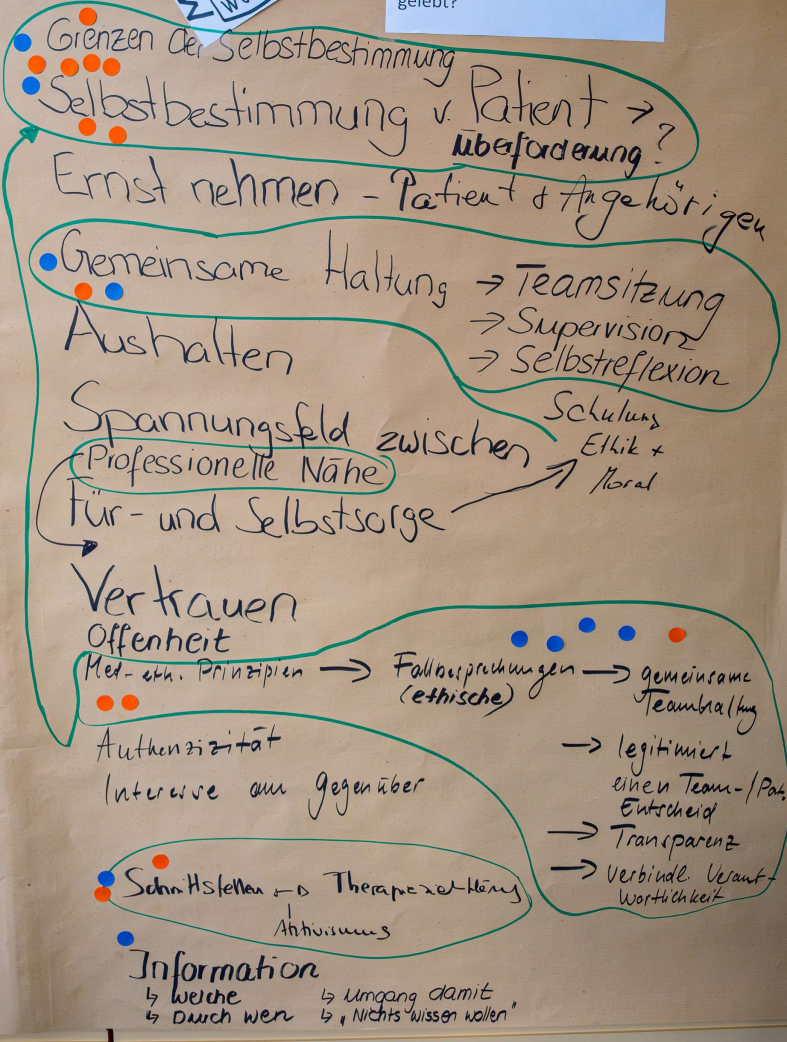 gelebt?
Grenzen der Selbstbestimmung
Selbstbestimmung v. Patient → ?
Überforderung
Ernst nehmen - Patient + Angehörigen
Gemeinsame Haltung → Teamsitzung
→ Supervision
→ Selbstreflexion
Aushalten
Schulung
Ethik +
Moral
Spannungsfeld zwischen
Professionelle Nähe
Für- und Selbstsorge
Vertrauen
Offenheit
Med-eth. Prinzipien → Fallbesprechungen → gemeinsame
(ethische) Teamhaltung
→ legitimiert
einen Team-/Pat.
Entscheid
→ Transparenz
→ Verbindl. Verant-
wortlichkeit
Authenzizität
Interesse am Gegenüber
Schnittstellen
Aktivismus
Information
↳ Welche ↳ Umgang damit
↳ Durch wen ↳ „Nichts wissen wollen"